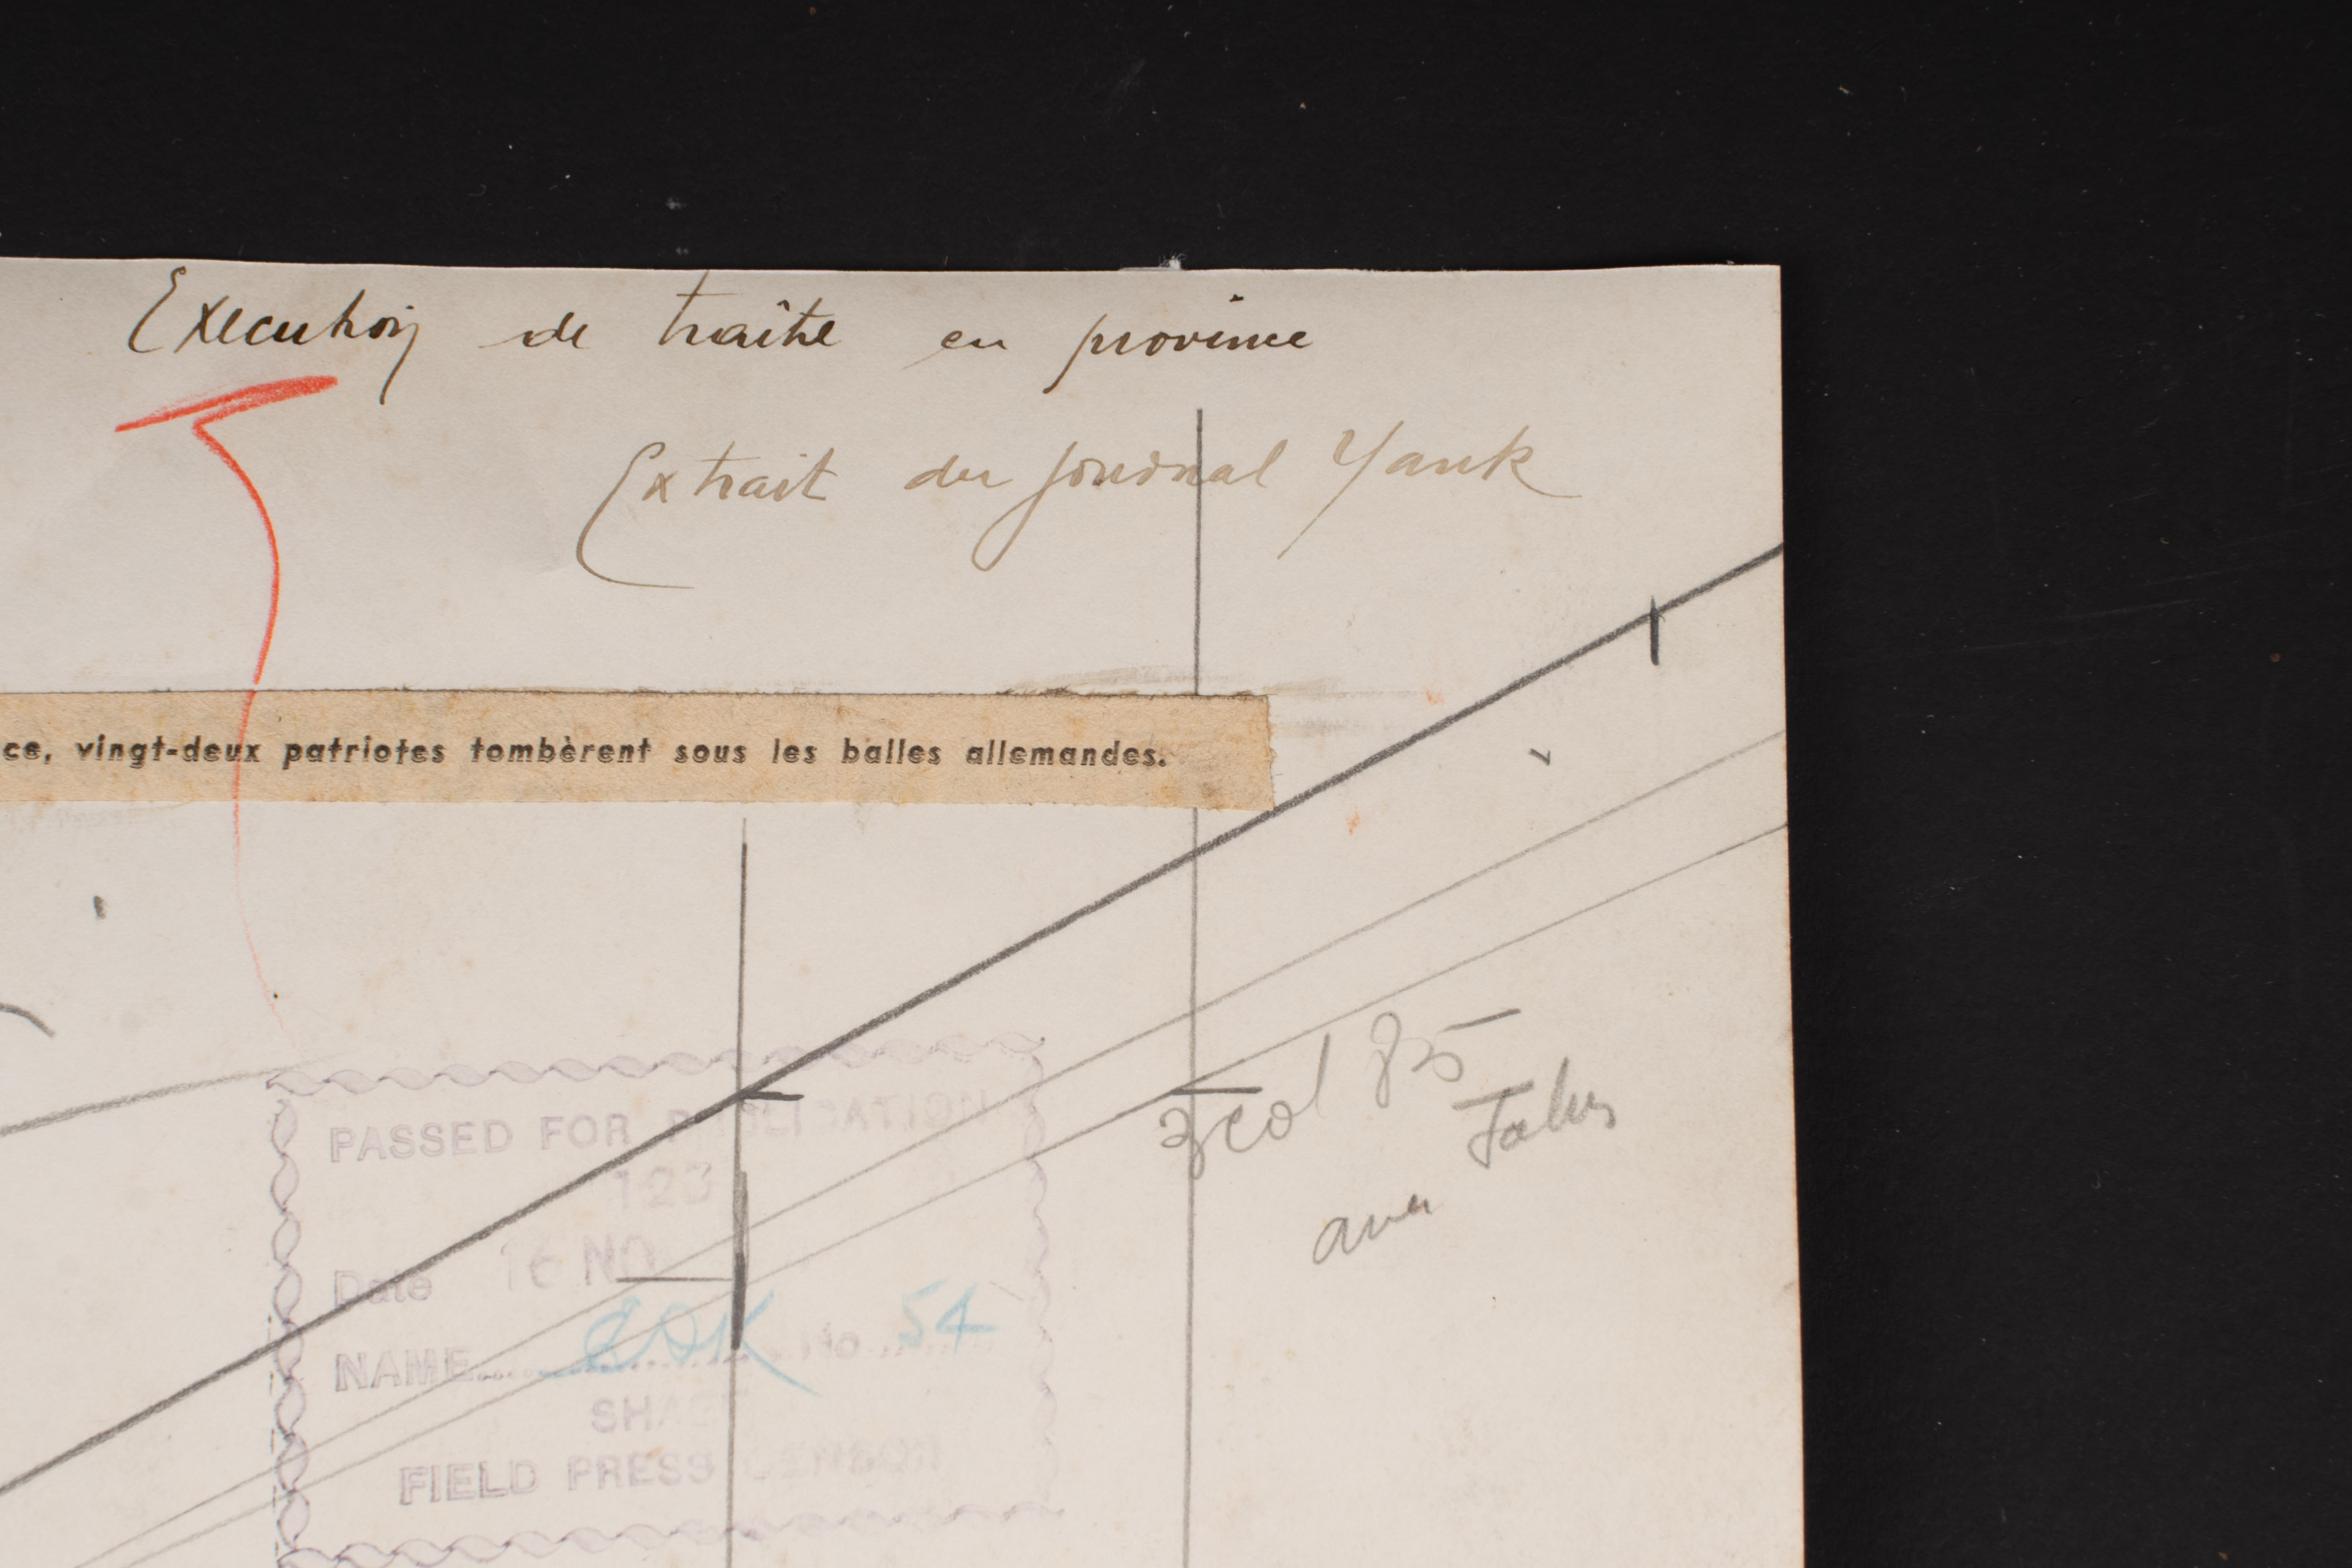 Execution de traître en province
Extrait du journal Yank
ce, vingt-deux patriotes tombèrent sous les balles allemandes.
3 col 85
avec
PASSED FOR PUBLICATION
123
Date 16 NO
NAME No 54
SHAEF
FIELD PRESS CENSOR